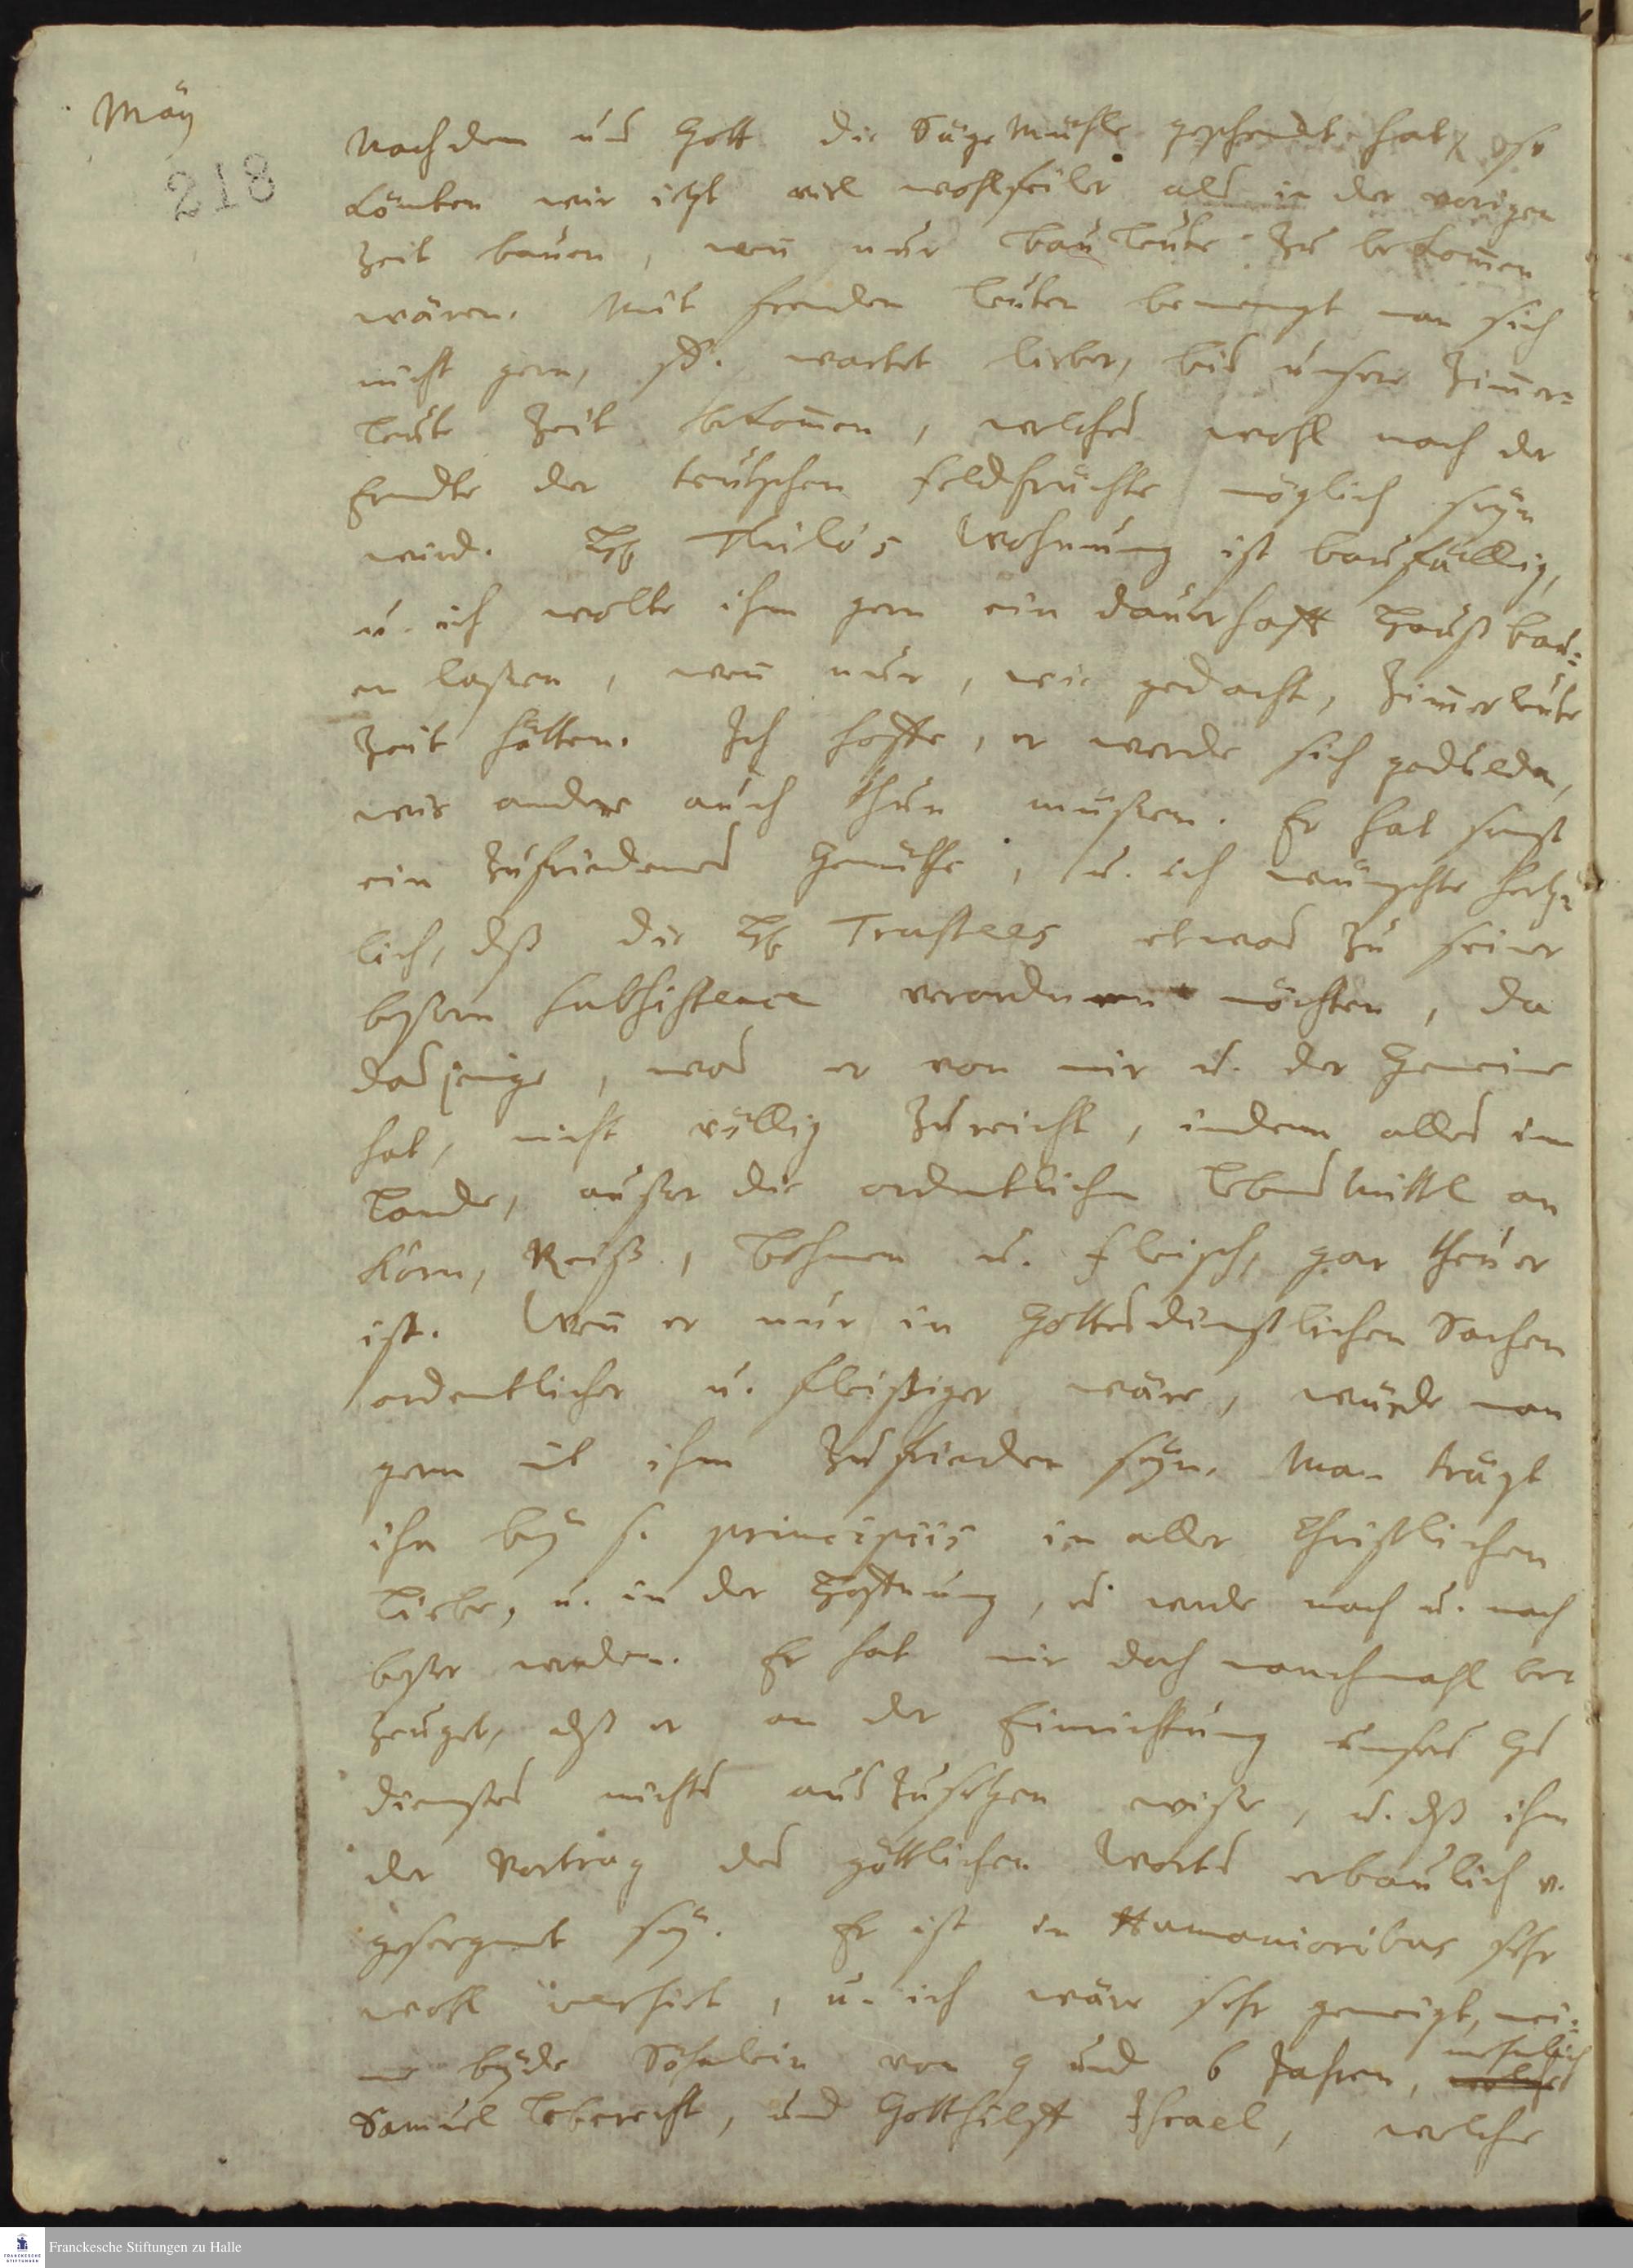 Mäy
218
Nachdem uns Gott die Säge Mühle geschenckt hat, so
könten wir itzt viel wohlfeiler als in der vorigen
Zeit bauen, weñ nur Bau Leute zu bekom̃en
wären. Mit fremden Leuten bemengt man sich
nicht gern, sd. wartet lieber, bis unsere Zim̃er=
Leute Zeit bekom̃en, welches wohl nach der
Erndte der teutschen Feldfrüchte möglich seyn
wird. H Thilo's Wohnung ist baufällig,
u. ich wolte ihm gern ein dauerhafft Hauß bau=
en laßen, weñ nur, wie gedacht, Zim̃erleute
Zeit hätten. Ich hoffe, er werde sich gedulden,
wie andere auch thun müßen. Er hat sonst
ein zufriedenes Gemüthe, u. ich wünschte hertz=
lich, dß die H Trustees etwas zu seiner
beßern Subsistence verordnen möchten, da
dasjenige, was er von mir u. der Gemeine
hat, nicht völlig zureicht, indem alles im
Lande, außer die ordentlichen Lebens Mittel an
Korn, Reiß, Bohnen u. Fleisch, gar theuer
ist. Weñ er nur in Gottesdienstlichen Sachen
ordentlicher u. fleißiger wäre, würde man
gern mit ihm zufrieden seyn. Man trägt
ihn bey s. principiis in aller Christlichen
Liebe, u. in der Hoffnung, es werde nach u. nach
beßer werden. Er hat mir doch manchmahl be=
zeuget, dß er an der Einrichtung unsers Gs
dienstes nichts auszusetzen wiße, u. dß ihm
der Vortrag des göttlichen Worts erbaulich u.
gesegnet sey. Er ist in Humanioribus sehr
wohl versirt, u. ich wäre sehr geneigt, mei=
ne beyde Söhnlein von 9 und 6 Jahren, nehmlich
Samuel Leberecht, und Gotthilff Israel, welche
Franckesche Stiftungen zu Halle